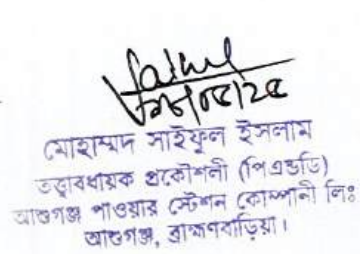 মোহাম্মদ সাইফুল ইসলাম
তত্ত্বাবধায়ক প্রকৌশলী (পিএন্ডডি)
আশুগঞ্জ পাওয়ার স্টেশন কোম্পানী লিঃ
আশুগঞ্জ, ব্রাহ্মণবাড়িয়া।